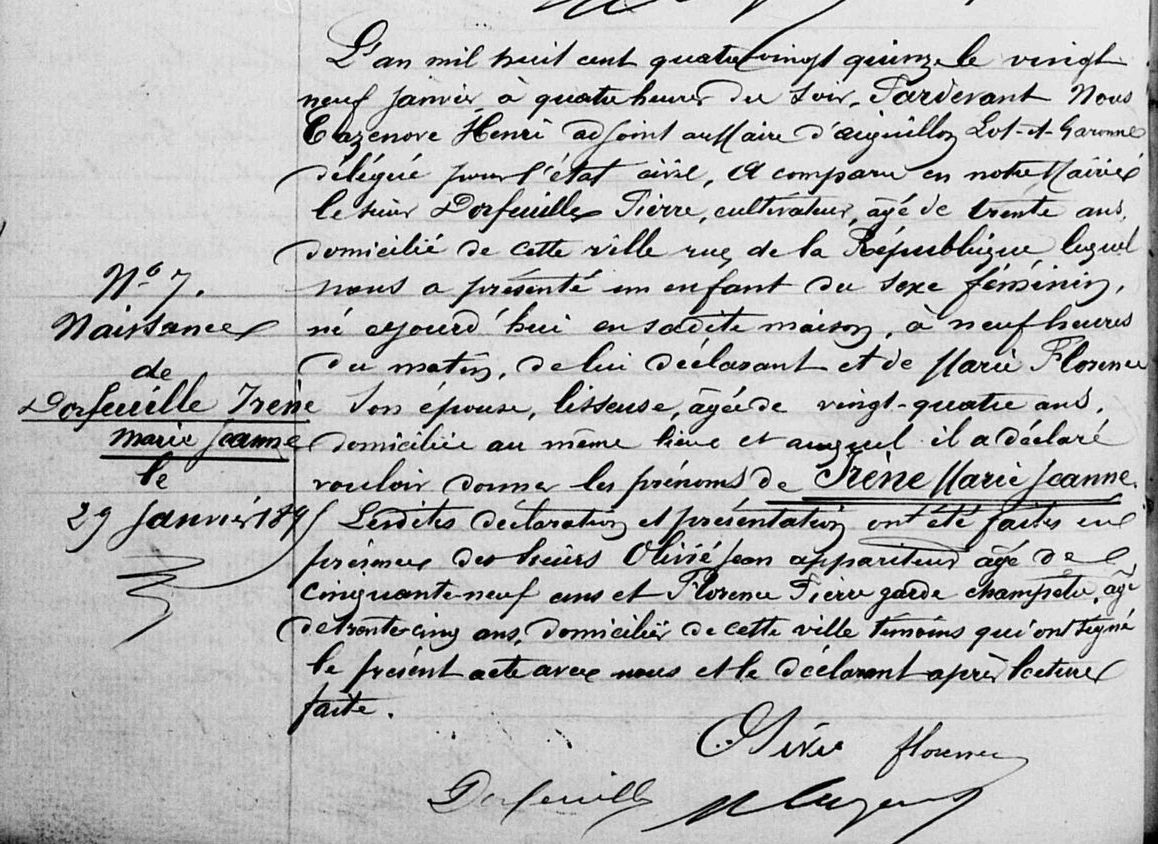 N° 7.
Naissance
de
Dorfeuille Irène
marie Jeanne
le
29 Janvier 1895
L'an mil huit cent quatre vingt quinze le vingt
neuf janvier, à quatre heures du soir, Pardevant Nous
Cazenove Henri adjoint au Maire d'aiguillon Lot-et-Garonne
délégué pour l'état civil, a comparu en notre Mairie
le sieur Dorfeuille Pierre, cultivateur, âgé de trente ans,
domicilié de cette ville rue de la République, lequel
nous a présenté un enfant du sexe féminin,
né aujourd'hui en sadite maison, à neuf heures
du matin, de lui déclarant et de Marie Florence
son épouse, lisseuse, âgée de vingt-quatre ans,
domiciliée au même lieu et auquel il a déclaré
vouloir donner les prénoms de Irène Marie Jeanne.
Lesdites déclaration et présentation ont été faites en
présence des sieurs Olivié Jean appariteur âgé de
cinquante-neuf ans et Florence Pierre garde champêtre, âgé
de trente-cinq ans, domiciliés de cette ville témoins qui ont signé
le présent acte avec nous et le déclarant après lecture
faite.
Olivié florence
Dorfeuille